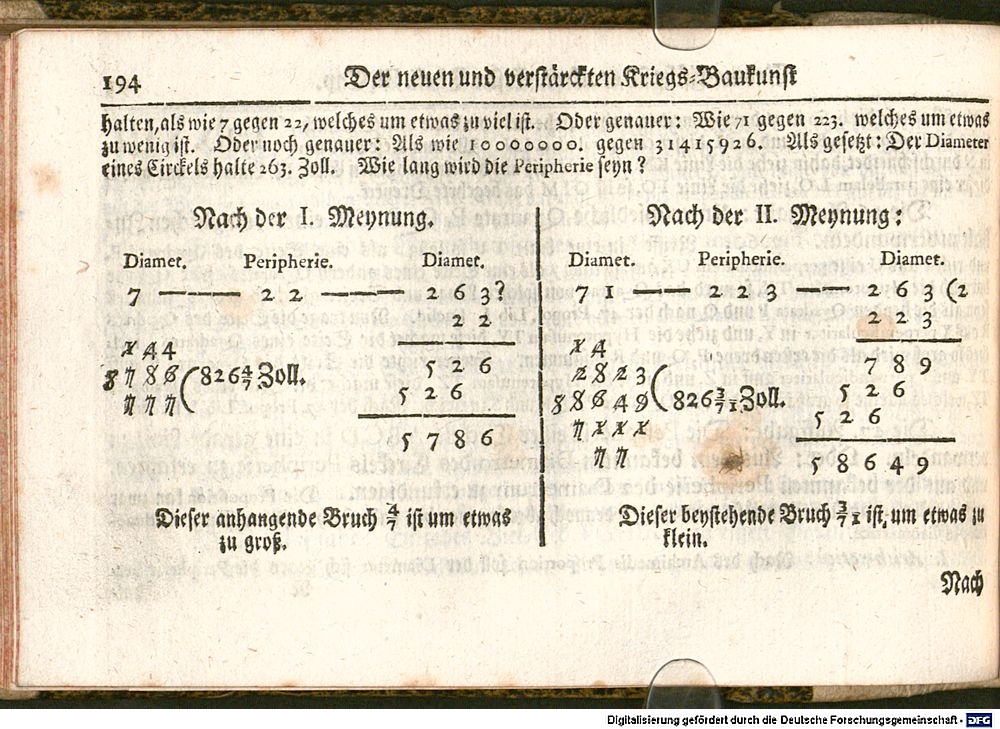 194 Der neuen und verstärckten Kriegs-Baukunst
halten, als wie 7 gegen 22, welches um etwas zu viel ist. Oder genauer: Wie 71 gegen 223. welches um etwas
zu wenig ist. Oder noch genauer: Als wie 10000000. gegen 31415926. Als gesetzt: Der Diameter
eines Circkels halte 263. Zoll. Wie lang wird die Peripherie seyn?
Nach der I. Meynung.
Diamet. Peripherie. Diamet.
7 — 22 — 263?
22
526
526
5786
144
8788 (826 4/7 Zoll.
777
Dieser anhangende Bruch 4/7 ist um etwas
zu groß.
Nach der II. Meynung:
Diamet. Peripherie. Diamet.
71 — 223 — 263 (2
223
789
526
526
58649
14
2823
58649 (826 3/71. Zoll.
7111
77
Dieser beystehende Bruch 3/71 ist, um etwas zu
klein.
Nach
Digitalisierung gefördert durch die Deutsche Forschungsgemeinschaft - DFG